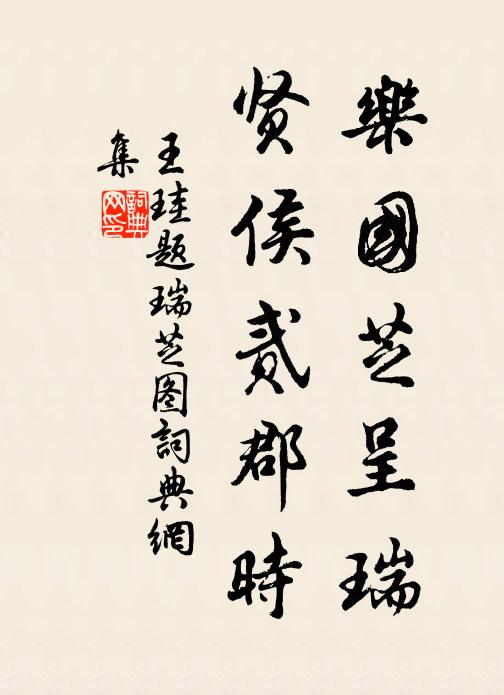 樂國芝呈瑞
贤侯貳郡時
王珪题瑞芝图詞典網
集
詞典
网印